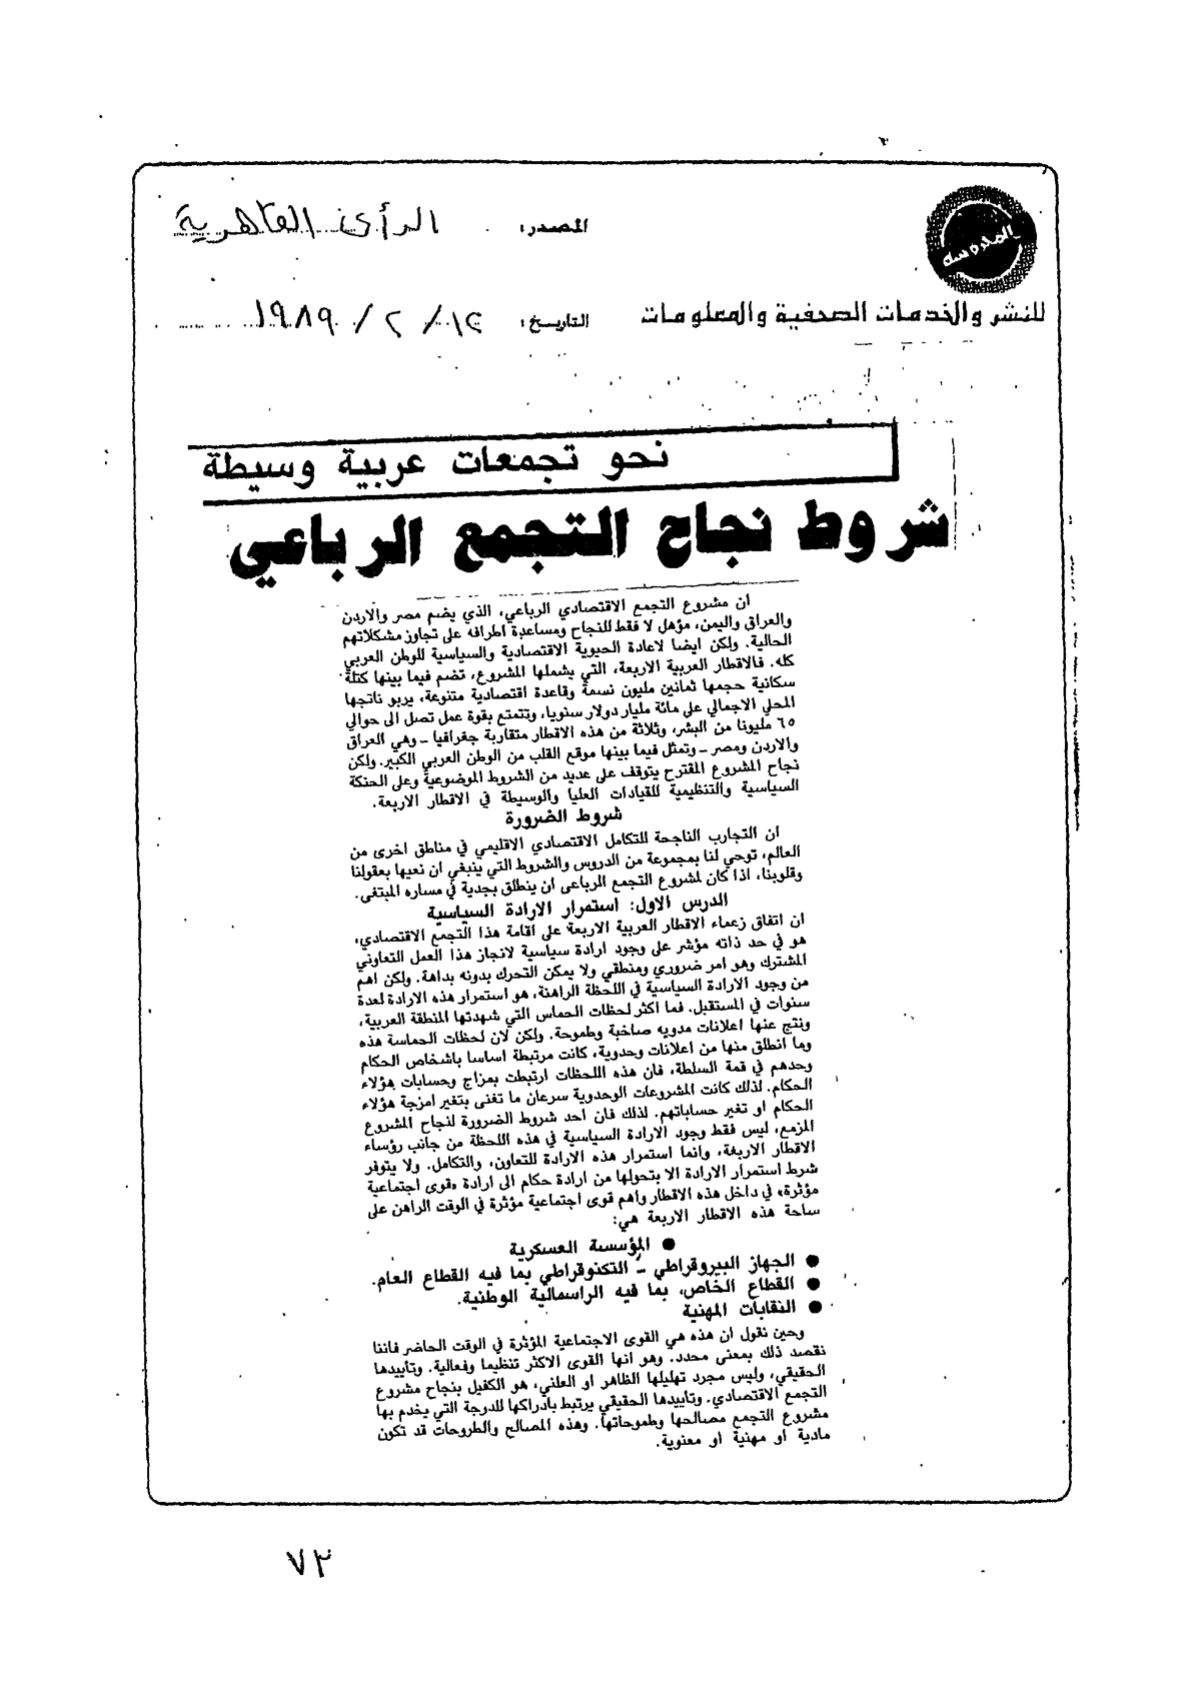 المصدر: الرأى القاهرية
المحروسة
للنشر والخدمات الصحفية والمعلومات
التاريخ: ١٤/ ٢ / ١٩٨٩
نحو تجمعات عربية وسيطة
شروط نجاح التجمع الرباعي
ان مشروع التجمع الاقتصادي الرباعي، الذي يضم مصر والاردن
والعراق واليمن، مؤهل لا فقط للنجاح ومساعدة اطرافه على تجاوز مشكلاتهم
الحالية. ولكن ايضا لاعادة الحيوية الاقتصادية والسياسية للوطن العربي
كله. فالاقطار العربية الاربعة، التي يشملها المشروع، تضم فيما بينها كتلة
سكانية حجمها ثمانين مليون نسمة وقاعدة اقتصادية متنوعة، يربو ناتجها
المحلي الاجمالي على مائة مليار دولار سنويا، وتتمتع بقوة عمل تصل الى حوالي
٦٥ مليونا من البشر، وثلاثة من هذه الاقطار متقاربة جغرافيا ـ وهي العراق
والاردن ومصر ـ وتمثل فيما بينها موقع القلب من الوطن العربي الكبير. ولكن
نجاح المشروع المقترح يتوقف على عديد من الشروط الموضوعية وعلى الحنكة
السياسية والتنظيمية للقيادات العليا والوسيطة في الاقطار الاربعة.
شروط الضرورة
ان التجارب الناجحة للتكامل الاقتصادي الاقليمي في مناطق اخرى من
العالم، توحي لنا بمجموعة من الدروس والشروط التي ينبغي ان نعيها بعقولنا
وقلوبنا، اذا كان لمشروع التجمع الرباعى ان ينطلق بجدية في مساره المبتغى.
الدرس الاول: استمرار الارادة السياسية
ان اتفاق زعماء الاقطار العربية الاربعة على اقامة هذا التجمع الاقتصادي،
هو في حد ذاته مؤشر على وجود ارادة سياسية لانجاز هذا العمل التعاوني
المشترك وهو امر ضروري ومنطقي ولا يمكن التحرك بدونه بداهة. ولكن اهم
من وجود الارادة السياسية في اللحظة الراهنة، هو استمرار هذه الارادة لعدة
سنوات في المستقبل. فما اكثر لحظات الحماس التي شهدتها المنطقة العربية،
ونتج عنها اعلانات مدويه صاخبة وطموحة. ولكن لان لحظات الحماسة هذه
وما انطلق منها من اعلانات وحدوية، كانت مرتبطة اساسا باشخاص الحكام
وحدهم في قمة السلطة، فان هذه اللحظات ارتبطت بمزاج وحسابات هؤلاء
الحكام. لذلك كانت المشروعات الوحدوية سرعان ما تغنى بتغير امزجة هؤلاء
الحكام او تغير حساباتهم. لذلك فان احد شروط الضرورة لنجاح المشروع
المزمع، ليس فقط وجود الارادة السياسية في هذه اللحظة من جانب رؤساء
الاقطار الاربعة، وانما استمرار هذه الارادة للتعاون، والتكامل. ولا يتوفر
شرط استمرار الارادة الا بتحولها من ارادة حكام الى ارادة «قوى اجتماعية
مؤثرة» في داخل هذه الاقطار واهم قوى اجتماعية مؤثرة في الوقت الراهن على
ساحة هذه الاقطار الاربعة هي:
● المؤسسة العسكرية
● الجهاز البيروقراطي ـ التكنوقراطي بما فيه القطاع العام.
● القطاع الخاص، بما فيه الراسمالية الوطنية.
● النقابات المهنية
وحين نقول ان هذه هي القوى الاجتماعية المؤثرة في الوقت الحاضر فاننا
نقصد ذلك بمعنى محدد. وهو انها القوى الاكثر تنظيما وفعالية. وتأييدها
الحقيقي، وليس مجرد تهليلها الظاهر او العلني، هو الكفيل بنجاح مشروع
التجمع الاقتصادي. وتأييدها الحقيقي يرتبط بادراكها للدرجة التي يخدم بها
مشروع التجمع مصالحها وطموحاتها. وهذه المصالح والطروحات قد تكون
مادية او مهنية او معنوية.
٧٣